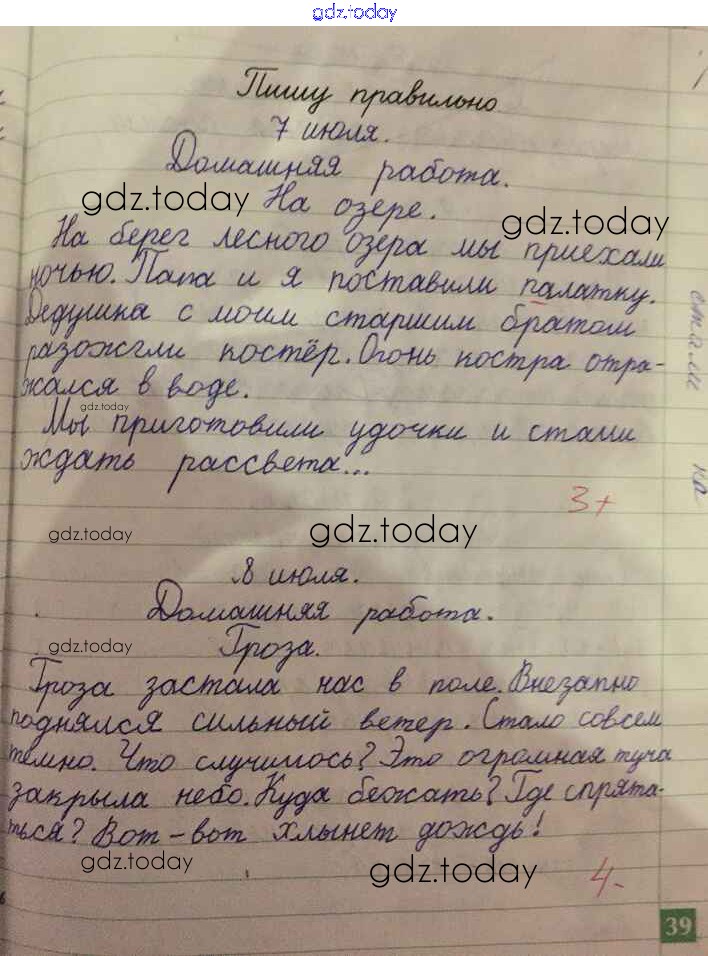 gdz.today
Пишу правильно
7 июля.
Домашняя работа.
gdz.today
На озере.
gdz.today
На берег лесного озера мы приехали
ночью. Папа и я поставили палатку.
Дедушка с моим старшим братом
разожгли костёр. Огонь костра отра-
жался в воде.
gdz.today
Мы приготовили удочки и стали
ждать рассвета...
3+
gdz.today
gdz.today
8 июля.
Домашняя работа.
gdz.today
Гроза.
Гроза застала нас в поле. Внезапно
поднялся сильный ветер. Стало совсем
темно. Что случилось? Это огромная туча
закрыла небо. Куда бежать? Где спрята-
ться? Вот-вот хлынет дождь!
gdz.today
gdz.today
4-
39